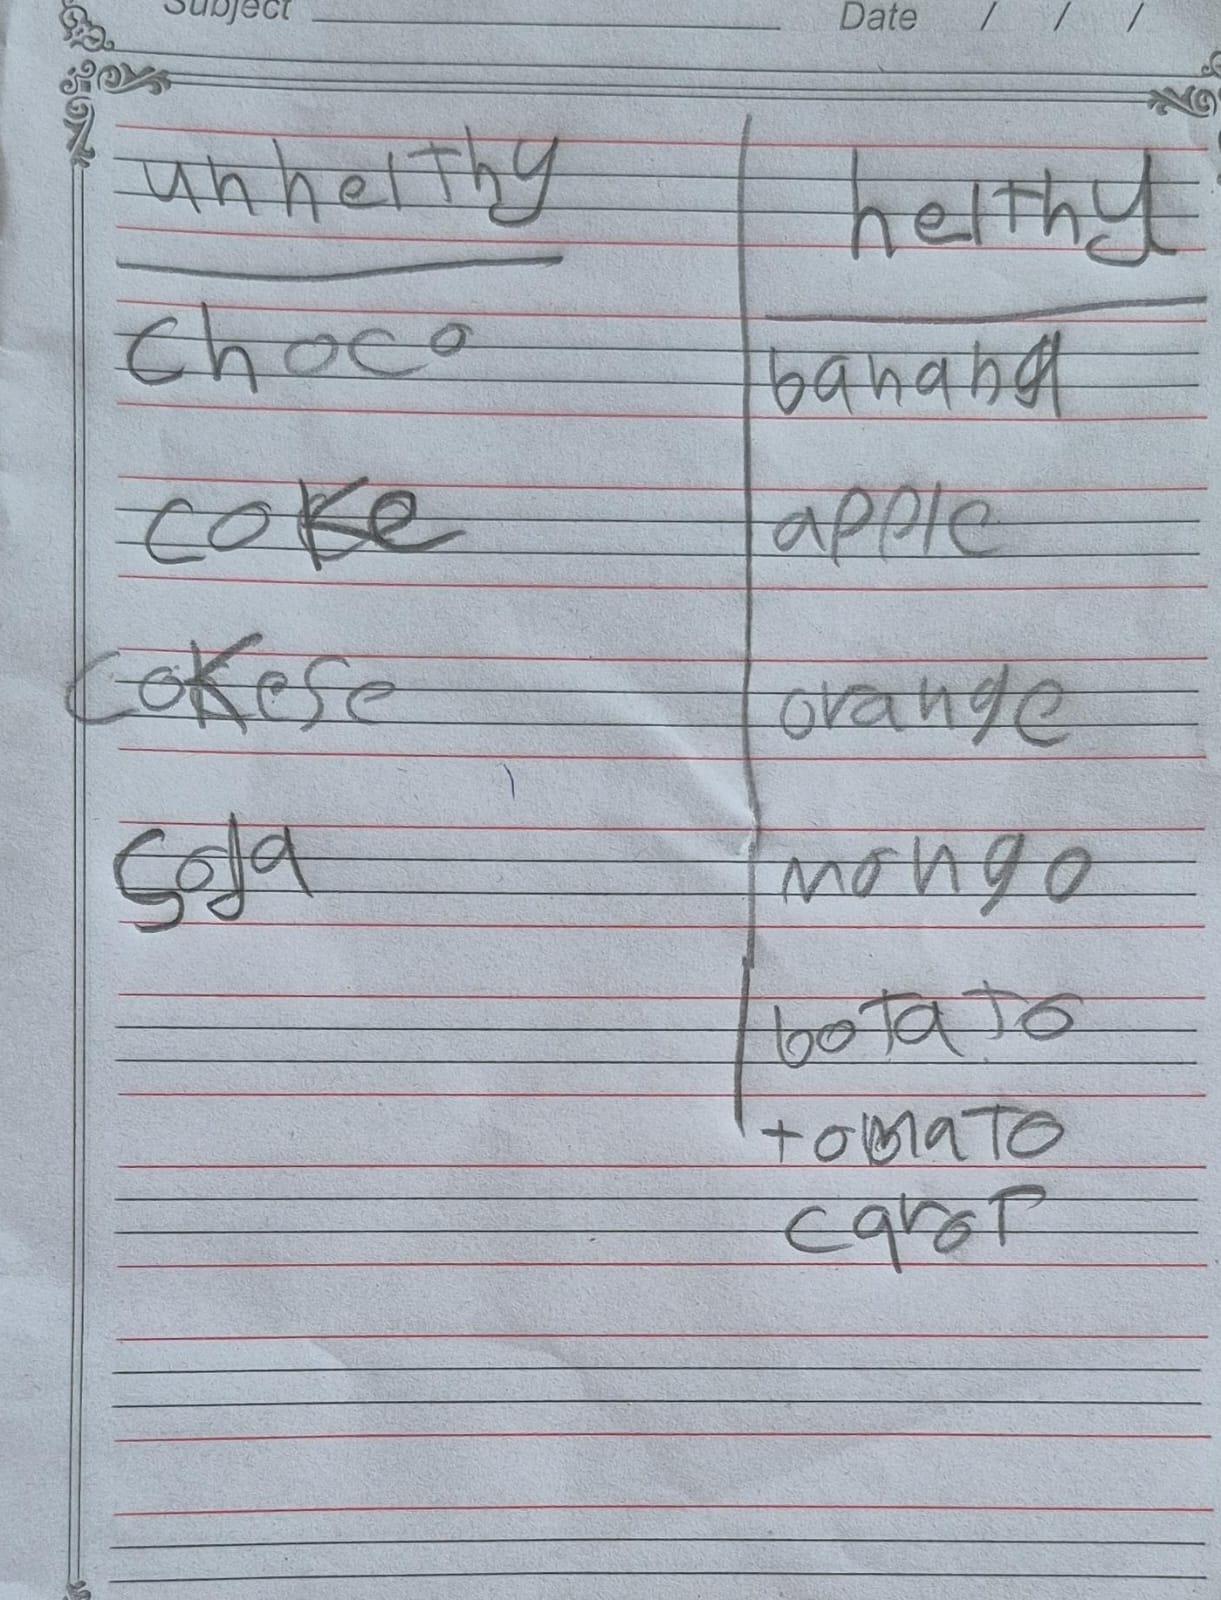 Subject Date / / /
unhelthy helthy
choco banana
coke apple
cokese orange
soda mongo
botato
tomato
carot